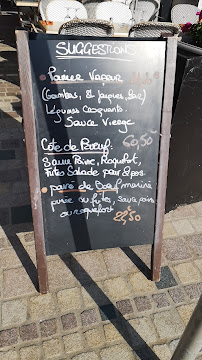 SUGGESTIONS
Panier Vapeur
(Gambas, St Jacques, Bar)
Légumes Croquants.
Sauce Vierge
Côte de Bœuf.
Sauce Poivre, Roquefort,
Frites Salade pour 2 pers
pavé de Bœuf mariné
purée ou frites, sauce poivre
ou roquefort 22,50